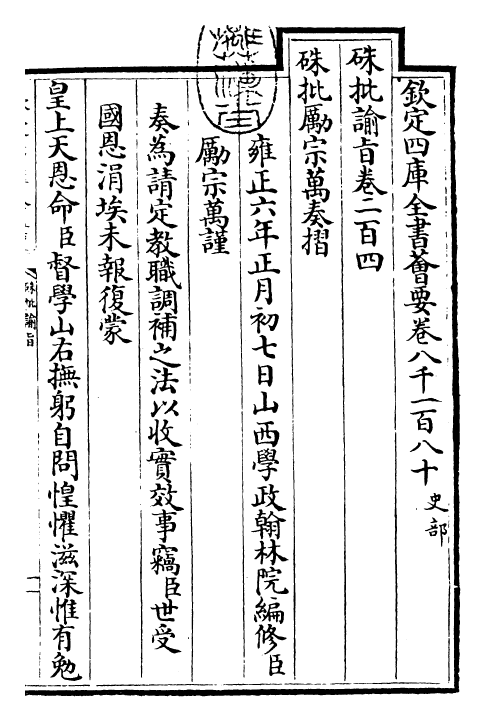 欽定四庫全書薈要卷八千一百八十 史部
硃批諭旨卷二百四
硃批勵宗萬奏摺
雍正六年正月初七日山西學政翰林院編修臣
勵宗萬謹
奏為請定教職調補之法以收實效事竊臣世受
國恩涓埃未報復蒙
皇上天恩命臣督學山右撫躬自問惶懼滋深惟有勉
硃批諭旨
一